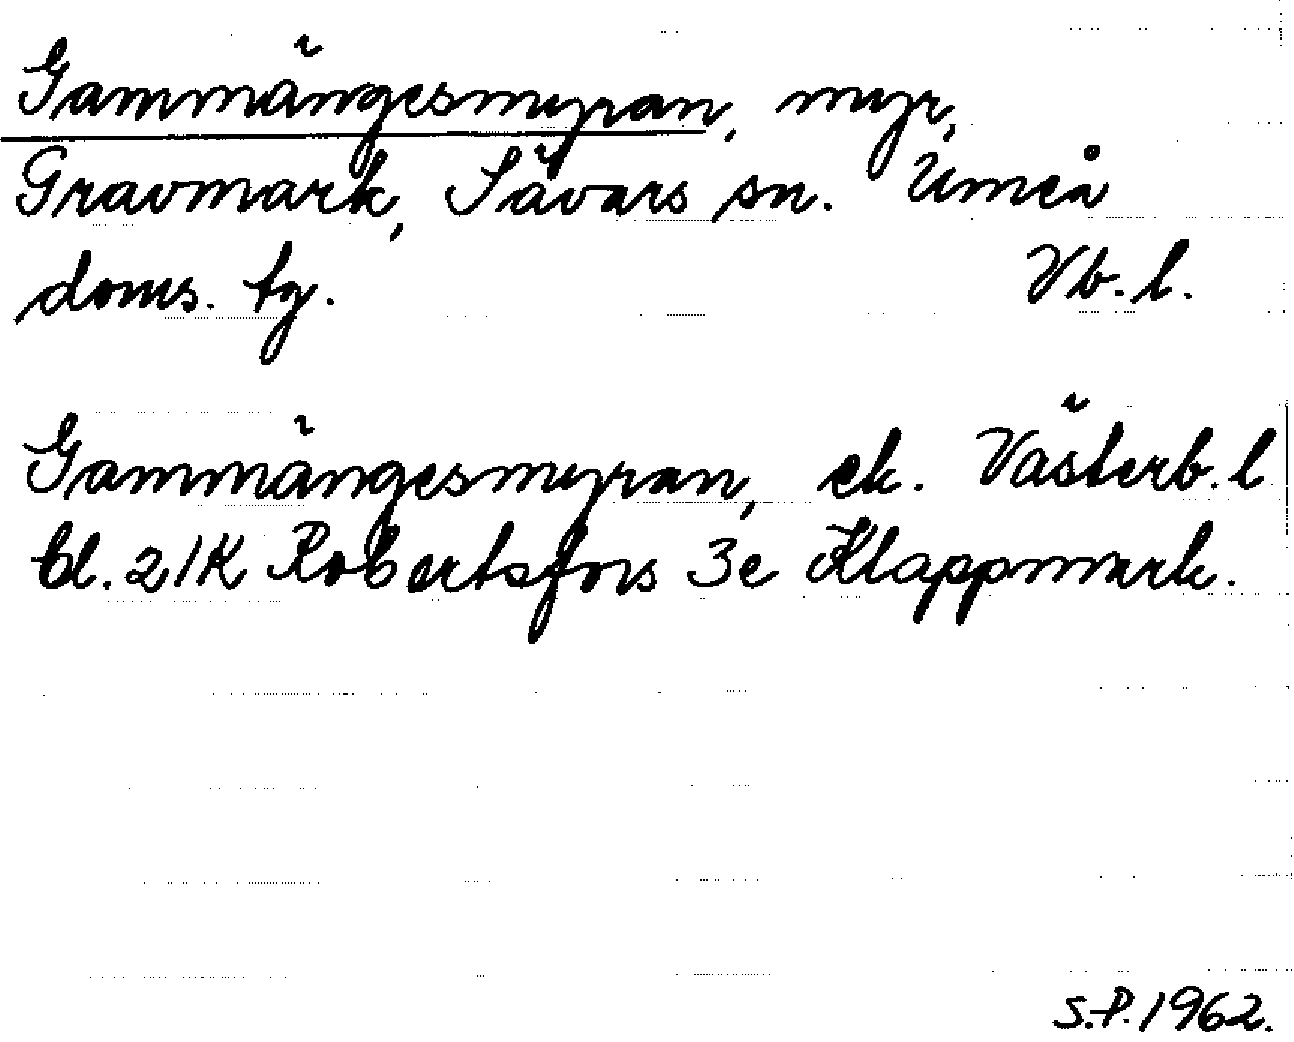 Gammängesmyran, myr,
Gravmark, Sävars sn. Umeå
doms. tg. Vb. l.
Gammängesmyran, ek. Västerb. l
bl. 21K Robertsfors 3e Klappmark.
S.P. 1962.